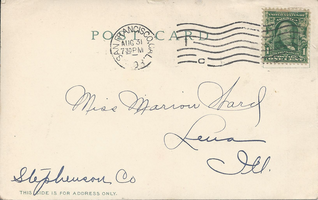 POST CARD
SAN FRANCISCO, CAL.
AUG 31
7 PM
C
1
Miss Marion Ward
Lena
Ill.
Stephenson Co
THIS SIDE IS FOR ADDRESS ONLY.